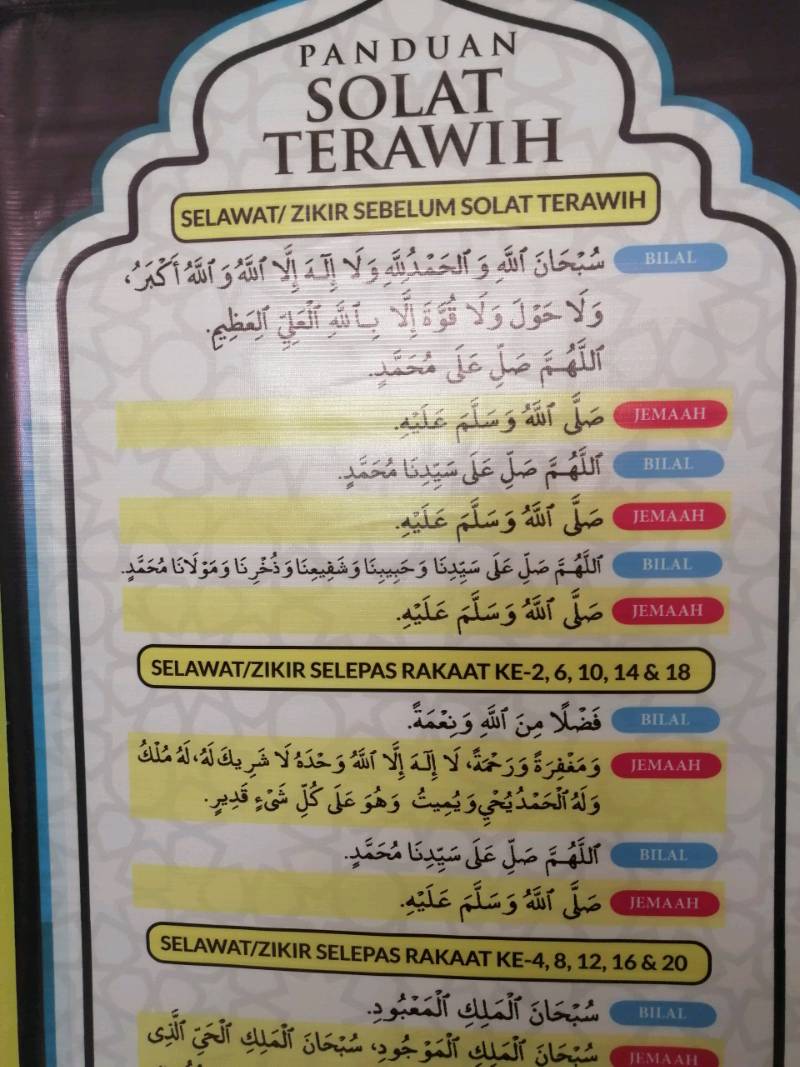 PANDUAN
SOLAT
TERAWIH
SELAWAT/ ZIKIR SEBELUM SOLAT TERAWIH
BILAL سُبْحَانَ ٱللَّهِ وَ ٱلْحَمْدُلِلَّهِ وَلَا إِلَـٰهَ إِلَّا ٱللَّهُ وَ ٱللَّهُ أَكْبَرُ،
وَلَا حَوْلَ وَلَا قُوَّةَ إِلَّا بِٱللَّهِ ٱلْعَلِيِّ ٱلْعَظِيمِ.
ٱللَّهُمَّ صَلِّ عَلَى مُحَمَّدٍ.
JEMAAH صَلَّى ٱللَّهُ وَسَلَّمَ عَلَيْهِ.
BILAL ٱللَّهُمَّ صَلِّ عَلَى سَيِّدِنَا مُحَمَّدٍ.
JEMAAH صَلَّى ٱللَّهُ وَسَلَّمَ عَلَيْهِ.
BILAL ٱللَّهُمَّ صَلِّ عَلَى سَيِّدِنَا وَحَبِيبِنَا وَشَفِيعِنَا وَذُخْرِنَا وَمَوْلَانَا مُحَمَّدٍ.
JEMAAH صَلَّى ٱللَّهُ وَسَلَّمَ عَلَيْهِ.
SELAWAT/ZIKIR SELEPAS RAKAAT KE-2, 6, 10, 14 & 18
BILAL فَضْلًا مِنَ ٱللَّهِ وَنِعْمَةً.
JEMAAH وَمَغْفِرَةً وَرَحْمَةً، لَا إِلَـٰهَ إِلَّا ٱللَّهُ وَحْدَهُ لَا شَرِيكَ لَهُ، لَهُ مُلْكُ
وَلَهُ ٱلْحَمْدُ يُحْيِ وَيُمِيتُ وَهُوَ عَلَى كُلِّ شَىْءٍ قَدِيرٍ.
BILAL ٱللَّهُمَّ صَلِّ عَلَى سَيِّدِنَا مُحَمَّدٍ.
JEMAAH صَلَّى ٱللَّهُ وَسَلَّمَ عَلَيْهِ.
SELAWAT/ZIKIR SELEPAS RAKAAT KE-4, 8, 12, 16 & 20
BILAL سُبْحَانَ ٱلْمَلِكِ ٱلْمَعْبُودِ.
JEMAAH سُبْحَانَ ٱلْمَلِكِ ٱلْمَوْجُودِ، سُبْحَانَ ٱلْمَلِكِ ٱلْحَيِّ ٱلَّذِى